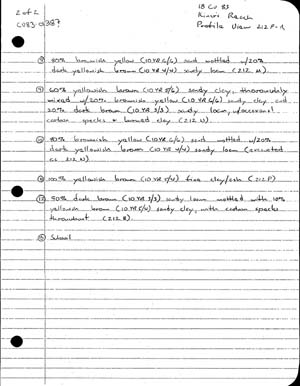 2 of 2
18 CV 83
River's Reach
Profile View 212 F-R
80% brownish yellow (10 YR 6/6) sand mottled w/20%
dark yellowish brown (10 YR 4/4) sandy loam (212 M)
60% yellowish brown (10YR 5/6) sandy clay, thoroughly
mixed w/20% brownish yellow (10 YR 6/6) sandy clay and
20% dark brown (10 YR 3/3) sandy loam, w/occasional
carbon specks & burned clay (212 N)
80% brownish yellow (10 YR 6/6) sand mottled w/20%
dark yellowish brown (10 YR 4/4) sandy loam (excavated
as 212 N)
100% yellowish brown (10 YR 5/4) fine clay/ash (212 P)
90% dark brown (10 YR 3/3) sandy loam mottled with 10%
yellowish brown (10 YR 5/4) sandy clay, with carbon specks
throughout (212 R)